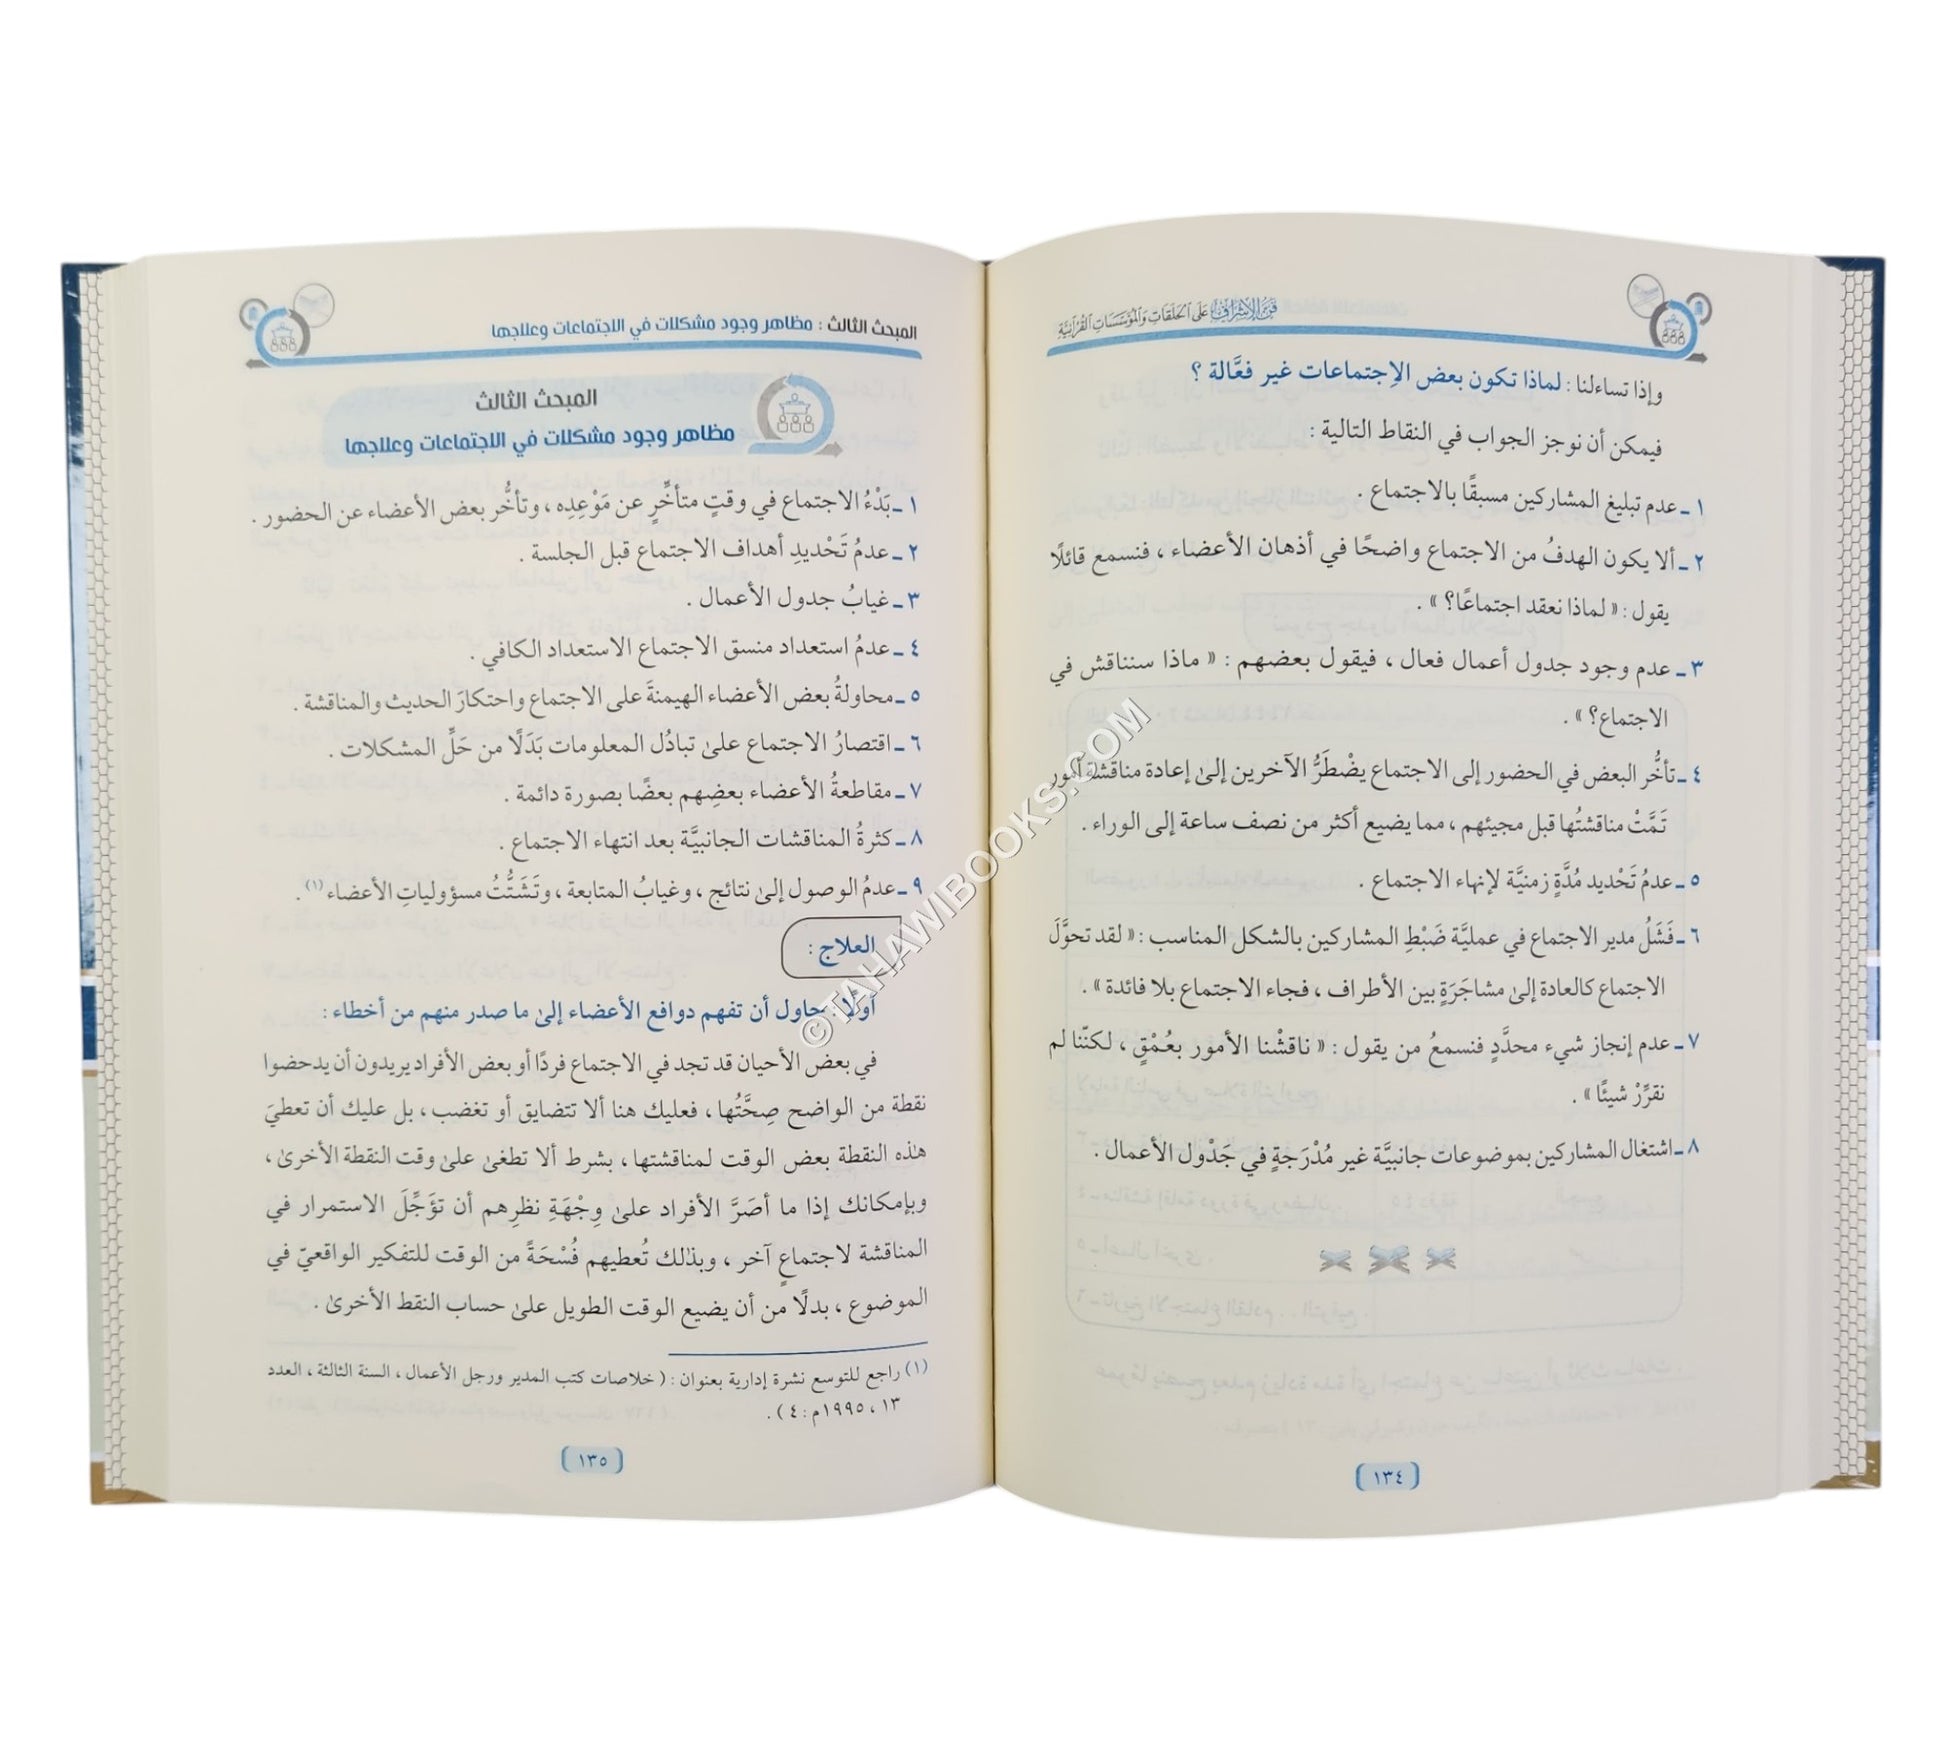 فن الإشراف على الحلقات والمؤسسات القرآنية
وإذا تساءلنا : لماذا تكون بعض الاِجتماعات غير فعَّالة ؟
فيمكن أن نوجز الجواب في النقاط التالية :
١ ـ عدم تبليغ المشاركين مسبقًا بالاجتماع .
٢ ـ ألا يكون الهدفُ من الاجتماع واضحًا في أذهان الأعضاء ، فنسمع قائلًا
يقول : « لماذا نعقد اجتماعًا؟ » .
٣ ـ عدم وجود جدول أعمال فعال ، فيقول بعضهم : « ماذا سنناقش في
الاجتماع؟ » .
٤ ـ تأخُّر البعض في الحضور إلى الاجتماع يضْطَرُّ الآخرين إلىٰ إعادة مناقشة أمور
تَمَّتْ مناقشتُها قبل مجيئهم ، مما يضيع أكثر من نصف ساعة إلى الوراء .
٥ ـ عدمُ تَحْديد مُدَّةٍ زمنيَّة لإنهاء الاجتماع .
٦ ـ فَشَلُ مدير الاجتماع في عمليَّة ضَبْطِ المشاركين بالشكل المناسب : « لقد تحوَّلَ
الاجتماع كالعادة إلىٰ مشاجَرَةٍ بين الأطراف ، فجاء الاجتماع بلا فائدة » .
٧ ـ عدم إنجاز شيء محدَّدٍ فنسمعُ من يقول : « ناقشْنا الأمور بعُمْقٍ ، لكنّنا لم
نقرِّرْ شيئًا » .
٨ ـ اشتغال المشاركين بموضوعات جانبيَّة غير مُدْرَجةٍ في جَدْول الأعمال .
( ١٣٤ )
المبحث الثالث : مظاهر وجود مشكلات في الاجتماعات وعلاجها
المبحث الثالث
مظاهر وجود مشكلات في الاجتماعات وعلاجها
١ ـ بَدْءُ الاجتماع في وقتٍ متأخِّرٍ عن مَوْعِدِه ، وتأخُّر بعض الأعضاء عن الحضور .
٢ ـ عدمُ تَحْديدِ أهداف الاجتماع قبل الجلسة .
٣ ـ غيابُ جدول الأعمال .
٤ ـ عدمُ استعداد منسق الاجتماع الاستعداد الكافي .
٥ ـ محاولةُ بعض الأعضاء الهيمنةَ على الاجتماع واحتكارَ الحديث والمناقشة .
٦ ـ اقتصارُ الاجتماع علىٰ تبادُل المعلومات بَدَلًا من حَلِّ المشكلات .
٧ ـ مقاطعةُ الأعضاء بعضِهم بعضًا بصورة دائمة .
٨ ـ كثرةُ المناقشات الجانبيَّة بعد انتهاء الاجتماع .
٩ ـ عدمُ الوصول إلىٰ نتائج ، وغيابُ المتابعة ، وتَشَتُّتُ مسؤولياتِ الأعضاء (١) .
العلاج :
أولًا : حاول أن تفهم دوافع الأعضاء إلىٰ ما صدر منهم من أخطاء :
في بعض الأحيان قد تجد في الاجتماع فردًا أو بعض الأفراد يريدون أن يدحضوا
نقطة من الواضح صِحَّتُها ، فعليك هنا ألا تتضايق أو تغضب ، بل عليك أن تعطيَ
هـٰذه النقطة بعض الوقت لمناقشتها ، بشرط ألا تطغىٰ علىٰ وقت النقطة الأخرىٰ ،
وبإمكانك إذا ما أصَرَّ الأفراد علىٰ وِجْهَةِ نظرِهم أن تؤَجِّلَ الاستمرار في
المناقشة لاجتماعٍ آخر ، وبذٰلك تُعطيهم فُسْحَةً من الوقت للتفكير الواقعيّ في
الموضوع ، بدلًا من أن يضيع الوقت الطويل علىٰ حساب النقط الأخرىٰ .
(١) راجع للتوسع نشرة إدارية بعنوان : ( خلاصات كتب المدير ورجل الأعمال ، السنة الثالثة ، العدد
١٣ ، ١٩٩٥م : ٤ ) .
( ١٣٥ )
© TAHAWIBOOKS.COM